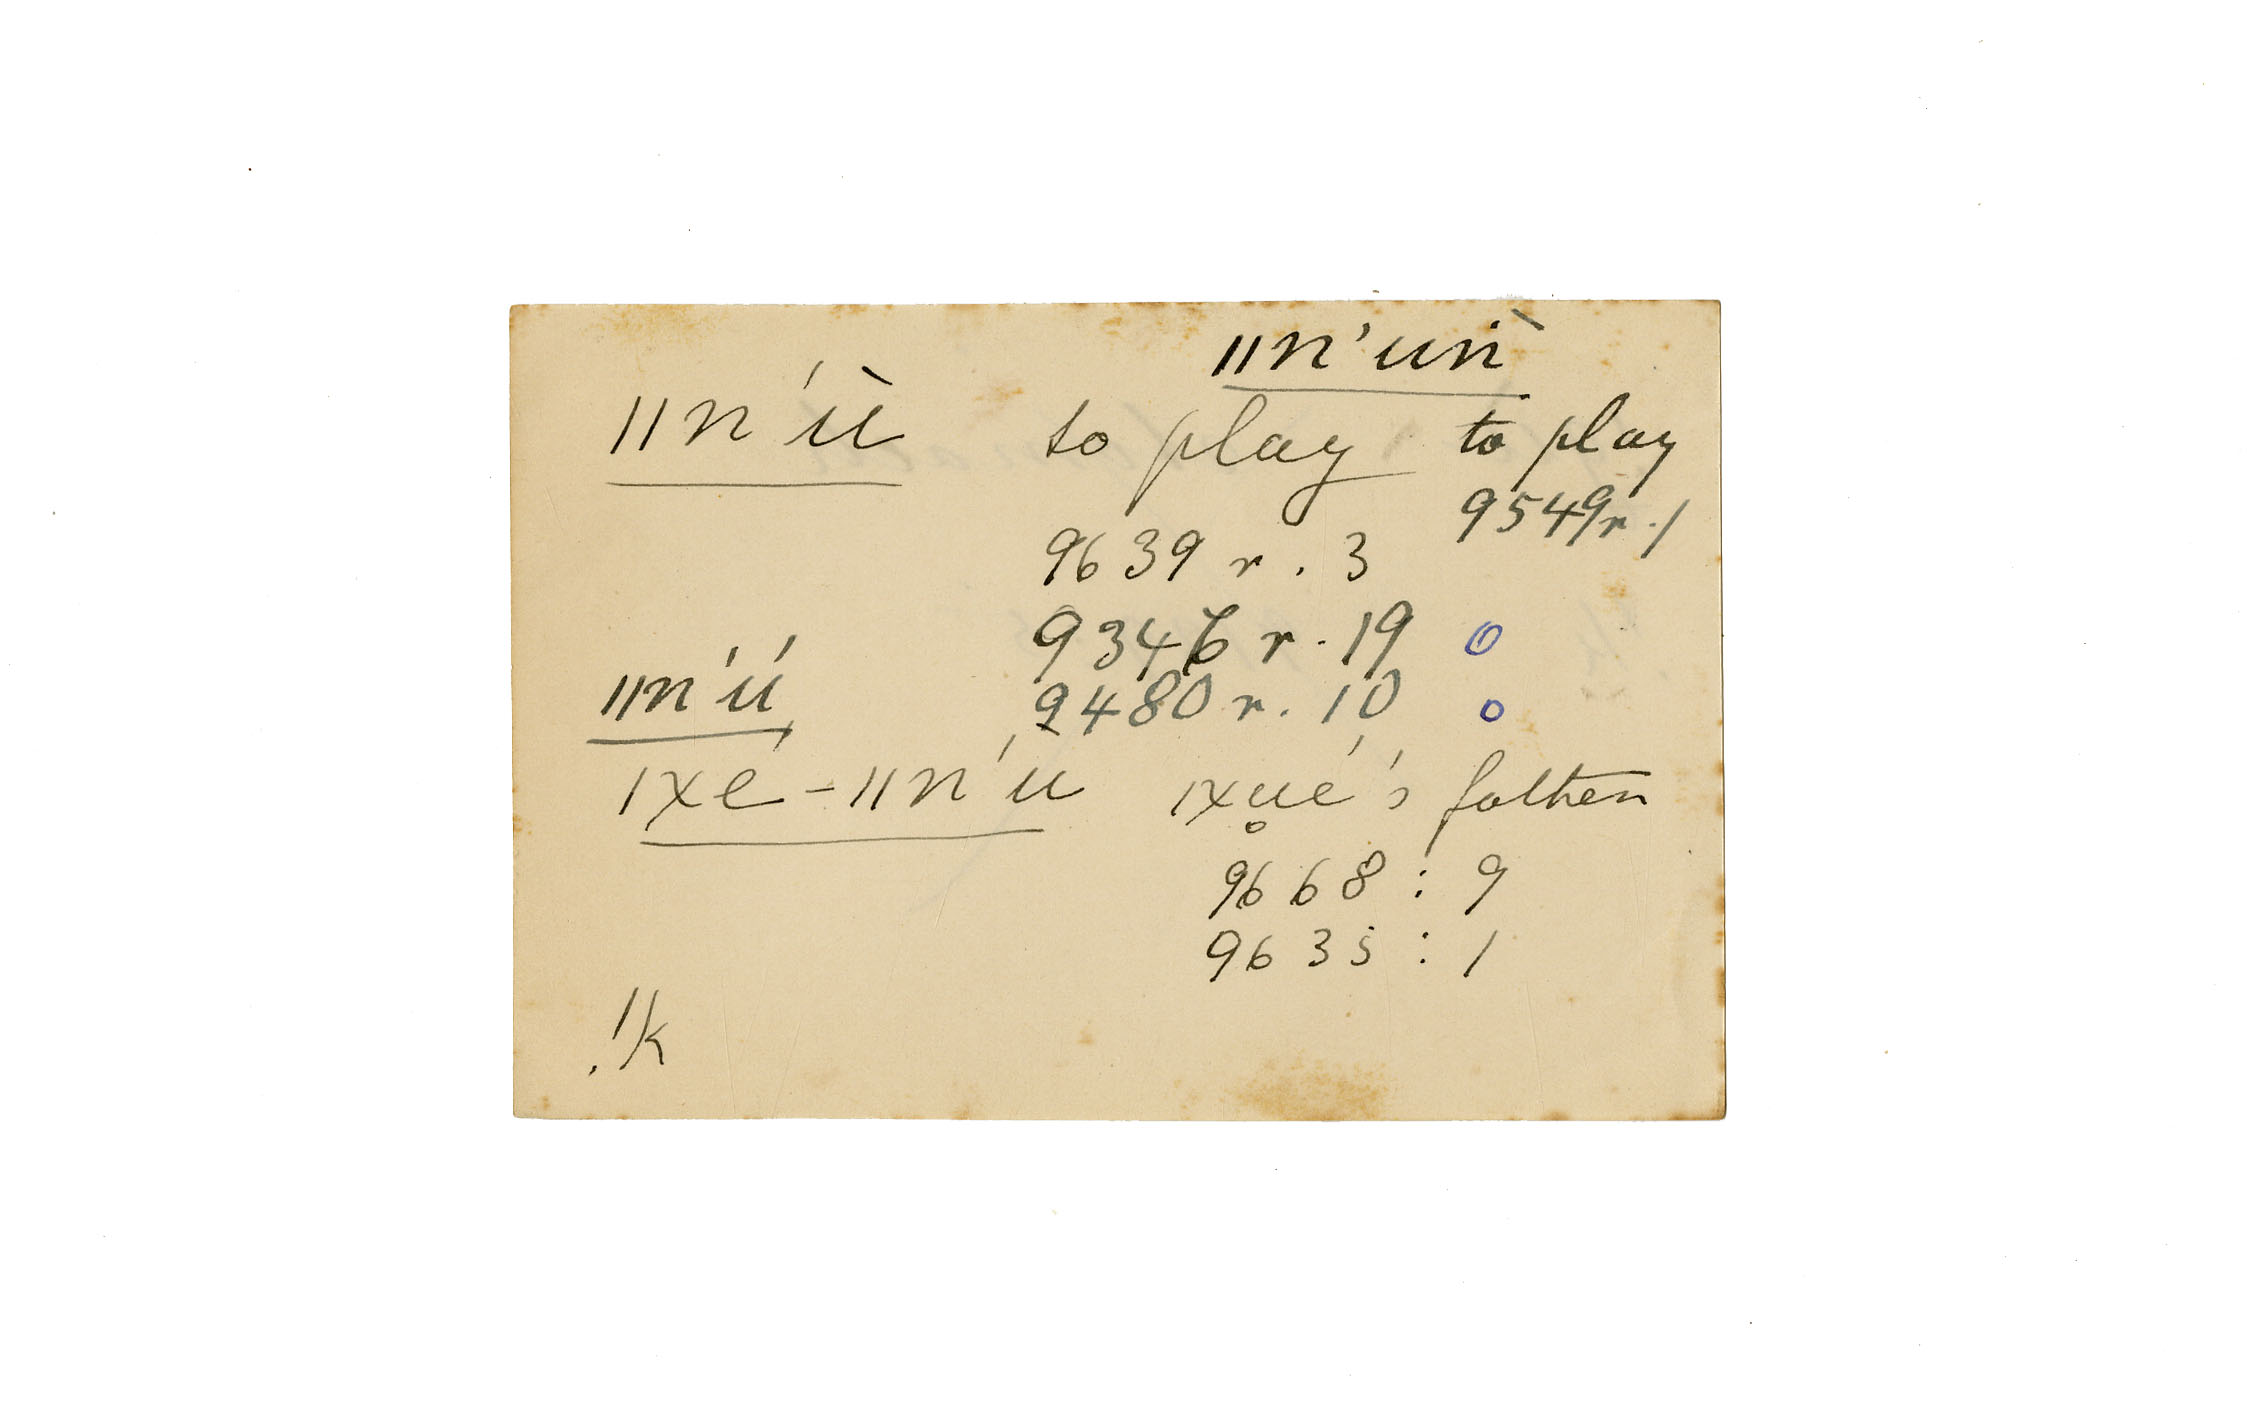 ǁn'uǹ
ǁn'ù to play to play
9549 r. 1
9639 r. 3
9346 r. 19 o
ǁn'ú 9480 r. 10 o
ǀxé-ǁn'u ǀxu̥é's father
9668 : 9
9635 : 1
!k